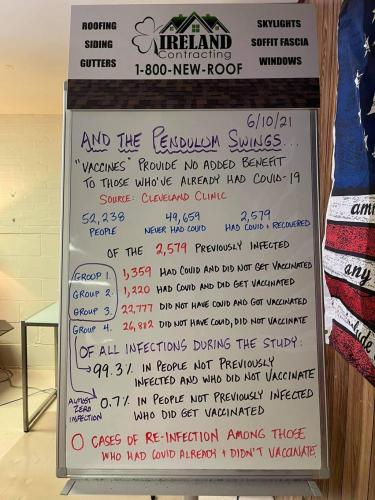 ROOFING
SIDING
GUTTERS
IRELAND
Contracting
1-800-NEW-ROOF
SKYLIGHTS
SOFFIT FASCIA
WINDOWS
6/10/21
AND THE PENDULUM SWINGS...
"VACCINES" PROVIDE NO ADDED BENEFIT
TO THOSE WHO'VE ALREADY HAD COVID-19
SOURCE: CLEVELAND CLINIC
52,238 49,659 2,579
PEOPLE NEVER HAD COVID HAD COVID + RECOVERED
OF THE 2,579 PREVIOUSLY INFECTED
GROUP 1. 1,359 HAD COVID AND DID NOT GET VACCINATED
GROUP 2. 1,220 HAD COVID AND DID GET VACCINATED
GROUP 3. 22,777 DID NOT HAVE COVID AND GOT VACCINATED
GROUP 4. 26,882 DID NOT HAVE COVID, DID NOT VACCINATE
OF ALL INFECTIONS DURING THE STUDY:
99.3% IN PEOPLE NOT PREVIOUSLY
INFECTED AND WHO DID NOT VACCINATE
ALMOST
ZERO
INFECTION
0.7% IN PEOPLE NOT PREVIOUSLY INFECTED
WHO DID GET VACCINATED
0 CASES OF RE-INFECTION AMONG THOSE
WHO HAD COVID ALREADY + DIDN'T VACCINATE
any